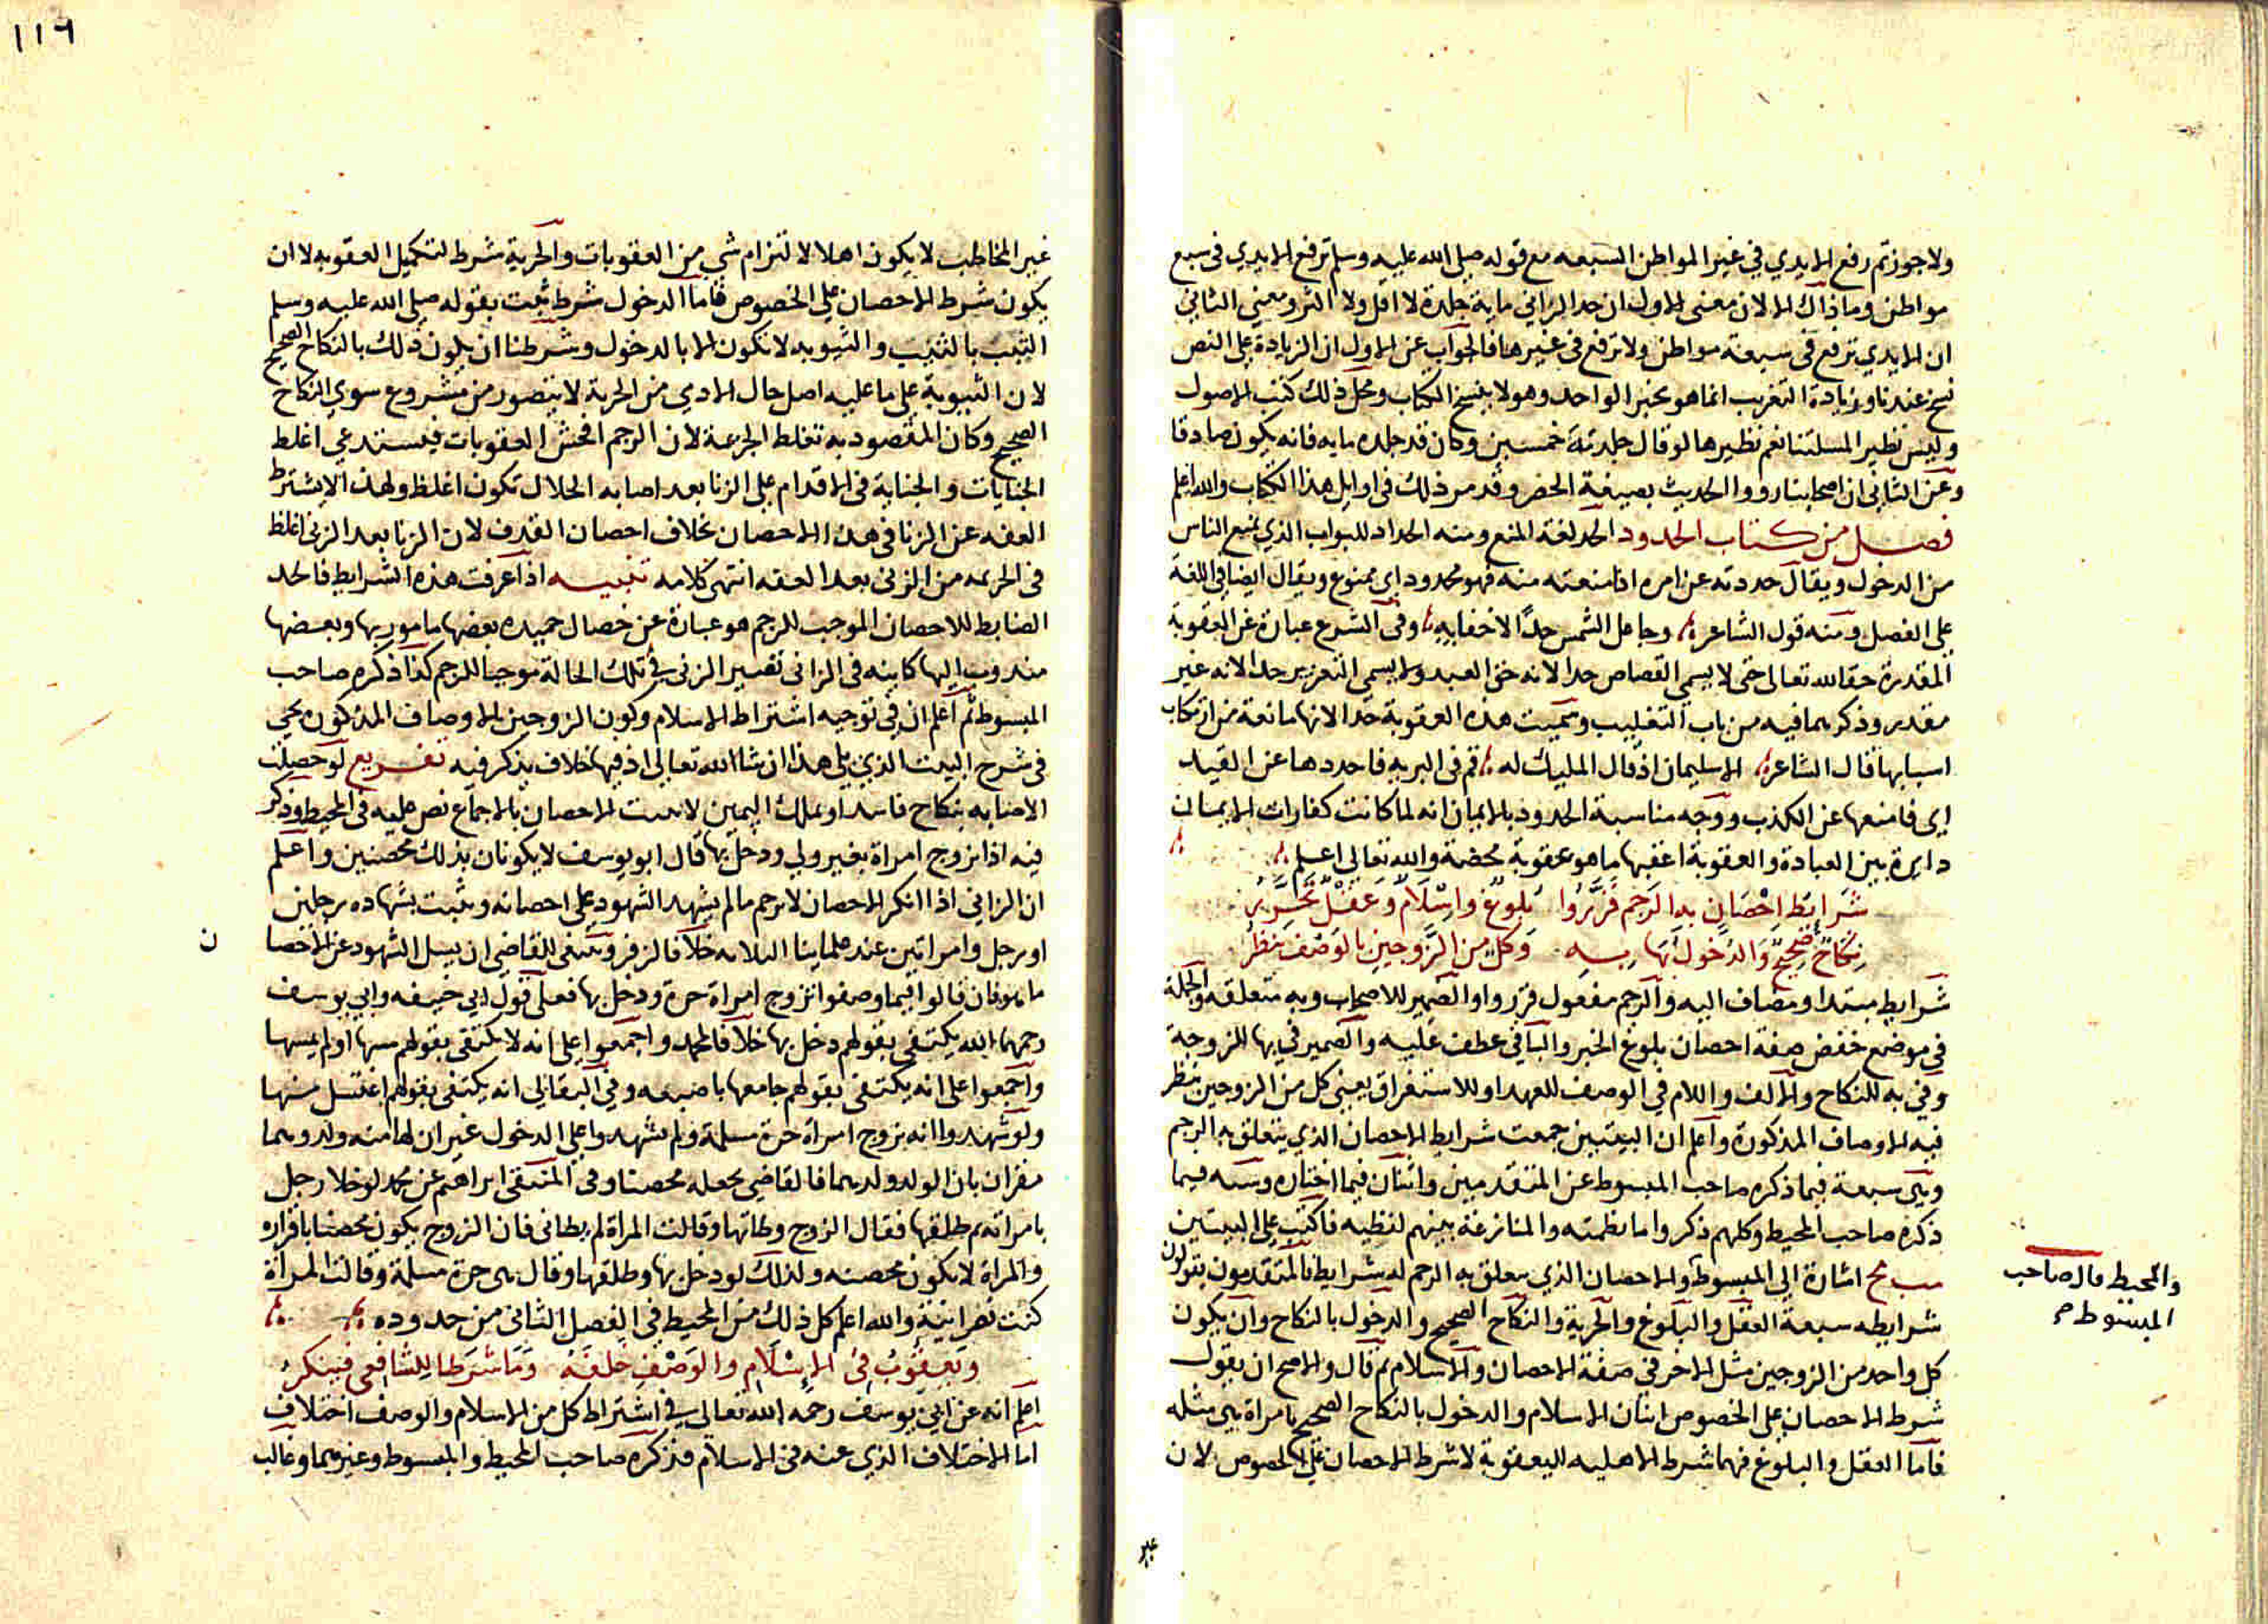 ولا جوزتم رفع الايدي في غير المواطن السبعه مع قوله صلى الله عليه وسلم ترفع الايدي في سبع
مواطن وما ذاك الا لان معنى الاول ان حد الزاني ماية جلدة لا اقل ولا اكثر ومعنى الثاني
ان الايدي ترفع في سبعة مواطن ولا ترفع في غيرها فالجواب عن الاول ان الزيادة على النص
نسخ عندنا وزيادة التغريب انما هو بخبر الواحد وهو لا ينسخ الكتاب ومحل ذلك كتب الاصول
وليس نظير المسلتنا نعم نظيرها لو قال جلدته خمسين وكان قد جلده مايه فانه يكون صادقا
وعن الثاني ان اصحابنا رووا الحديث بصيغة الحصر وقد مر ذلك في اوايل هذا الكتاب والله اعلم
فصل من كتاب الحدود الحد لغة المنع ومنه الحداد للبواب الذي يمنع الناس
من الدخول ويقال حددته عن امره اذا منعته منه فهو محدود اي ممنوع ويقال ايضا في اللغة
على الفصل ومنه قول الشاعر وجاعل الشمس حدًا لا خفا به وفي الشرع عبارة عن العقوبة
المقدرة حقا لله تعالى حتى لا يسمى القصاص حدا لانه حق العبد ولا يسمى التعزير حدا لانه غير
مقدر وذكرهما فيه من باب التغليب وسميت هذه العقوبة حدا لانها مانعة من ارتكاب
اسبابها قال الشاعر الا سليمان اذ قال المليك له قم في البريه فاحددها عن الفند
اي فامنعها عن الكذب ووجه مناسبة الحدود بالايمان انه لما كانت كفارات الايمان
دايرة بين العبادة والعقوبة اعقبها ما هو عقوبة محضة والله تعالى اعلم
شرايط احصان به الرجم قرروا بلوغ واسلام وعقل تحرر
نكاح صحيح والدخول بها به وكل من الزوجين بالوصف ينظر
شرايط مبتدا ومضاف اليه والرجم مفعول قرروا والضمير للاصحاب وبه متعلقه والجملة
في موضع خفض صفة احصان بلوغ الخبر والباقي عطف عليه والضمير في بها للزوجة
وفي به للنكاح والالف واللام في الوصف للعهد او للاستغراق يعني كل من الزوجين ينظر
فيه الاوصاف المذكورة واعلم ان البيتين جمعت شرايط الاحصان الذي يتعلق به الرجم
وهي سبعة فيما ذكره صاحب المبسوط عن المتقدمين واثنان فيما اختاره وسته فيما
ذكره صاحب المحيط وكلهم ذكروا ما نظمته والمنازعة بينهم لفظيه فاكتب على البيتين
مب مح اشارة الى المبسوط والاحصان الذي يتعلق به الرجم له شرايط فالمتقدمون يقولون
والمحيط قال صاحب
المبسوط
شرايطه سبعة العقل والبلوغ والحرية والنكاح الصحيح والدخول بالنكاح وان يكون
كل واحد من الزوجين مثل الاخر في صفة الاحصان والاسلام ثم قال والاصح ان يقول
شرط الاحصان على الخصوص اثنان الاسلام والدخول بالنكاح الصحيح بامراة هي مثله
فاما العقل والبلوغ فهما شرط الاهليه للعقوبة لا شرط الاحصان على الخصوص لان
غير
١١٦
غير المخاطب لا يكون اهلا لالتزام شي من العقوبات والحرية شرط لتكميل العقوبه لا ان
يكون شرط الاحصان على الخصوص فاما الدخول شرط ثبت بقوله صلى الله عليه وسلم
الثيب بالثيب والثيوبه لا تكون الا بالدخول وشرطنا ان يكون ذلك بالنكاح الصحيح
لان الثيوبة على ما عليه اصل حال الادمي من الحرية لا يتصور من مشروع سوى النكاح
الصحيح وكان المقصود به تغلظ الجريمة لان الرجم افحش العقوبات فيستدعي اغلظ
الجنايات والجناية في الاقدام على الزنا بعد اصابه الحلال تكون اغلظ ولهذا لا يشترط
العفه عن الزنا في هذا الاحصان بخلاف احصان القذف لان الزنا بعد الزنى اغلظ
في الحريمه من الزنى بعد العفه انتهى كلامه تنبيه اذا عرفت هذه الشرايط فالحد
الضابط للاحصان الموجب للرجم هو عبارة عن خصال حميده بعضها مامور بها وبعضها
مندوب اليها كاينه في الزاني تفسير الزنى في تلك الحالة موجبا للرجم كذا ذكره صاحب
المبسوط ثم اعلم ان في توجيه اشتراط الاسلام وكون الزوجين بالاوصاف المذكوره يجي
في شرح البيت الذي يلي هذا ان شا الله تعالى اذ فيها خلاف يذكر فيه تفريع لو حصلت
الاصابه بنكاح فاسد او بملك اليمين لا يثبت الاحصان بالاجماع نص عليه في المحيط وذكر
فيه اذا تزوج امراة بغير ولي ودخل بها قال ابو يوسف لا يكونان بذلك محصنين واعلم
ان الزاني اذا انكر الاحصان لا يرجم ما لم يشهد الشهود على احصانه ويثبت بشهاده رجلين
او رجل وامراتين عند علماينا الثلاثه خلافا لزفر وينبغي للقاضي ان يسل الشهود عن الاحصا
ن
ما هو فان قالوا فيما وصفوا تزوج امراة حرة ودخل بها فعلى قول ابي حنيفه وابي يوسف
رحمهما الله يكتفى بقولهم دخل بها خلافا لمحمد واجمعوا على انه لا يكتفى بقولهم مسها او لمسها
واجمعوا على انه يكتفى بقولهم جامعها باضعها وفي البقالي انه يكتفى بقولهم اغتسل منها
ولو شهدوا انه تزوج امراة حرة مسلمة ولم يشهدوا على الدخول غير ان لها منه ولد وهما
مقران بان الولد ولدهما فالقاضي يجعله محصنا وفي المنتقى ابراهيم عن محمد لو خلا رجل
بامراته ثم طلقها فقال الزوج وطاتها وقالت المراة لم يطاني فان الزوج يكون محصنا باقراره
والمراة لا تكون محصنه وكذلك لو دخل بها وطلقها وقال هي حرة مسلمة وقالت المراة
كنت نصرانية والله اعلم كل ذلك من المحيط في الفصل الثاني من حدوده
ويعقوب في الاسلام والوصف خلفه وما شرطا للشافعي فينكر
اعلم انه عن ابي يوسف رحمه الله تعالى في اشتراط كل من الاسلام والوصف اختلاف
اما الاختلاف الذي عنه في الاسلام فذكره صاحب المحيط والمبسوط وغيرهما وغالب